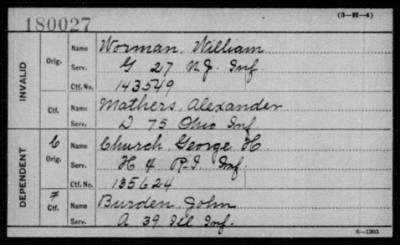 180027
(3—H—4)
INVALID
Orig.
Name Worman, William
Serv. G 27 N.J. Inf
Ctf. No. 143549
Ctf.
Name Mathers, Alexander
Serv. D 75 Ohio Inf
DEPENDENT
Orig.
Name Church, George H.
Serv. H 4 R.I. Inf.
Ctf. No. 135624
Ctf.
Name Burden, John
Serv. A 39 Ill Inf.
6—1303